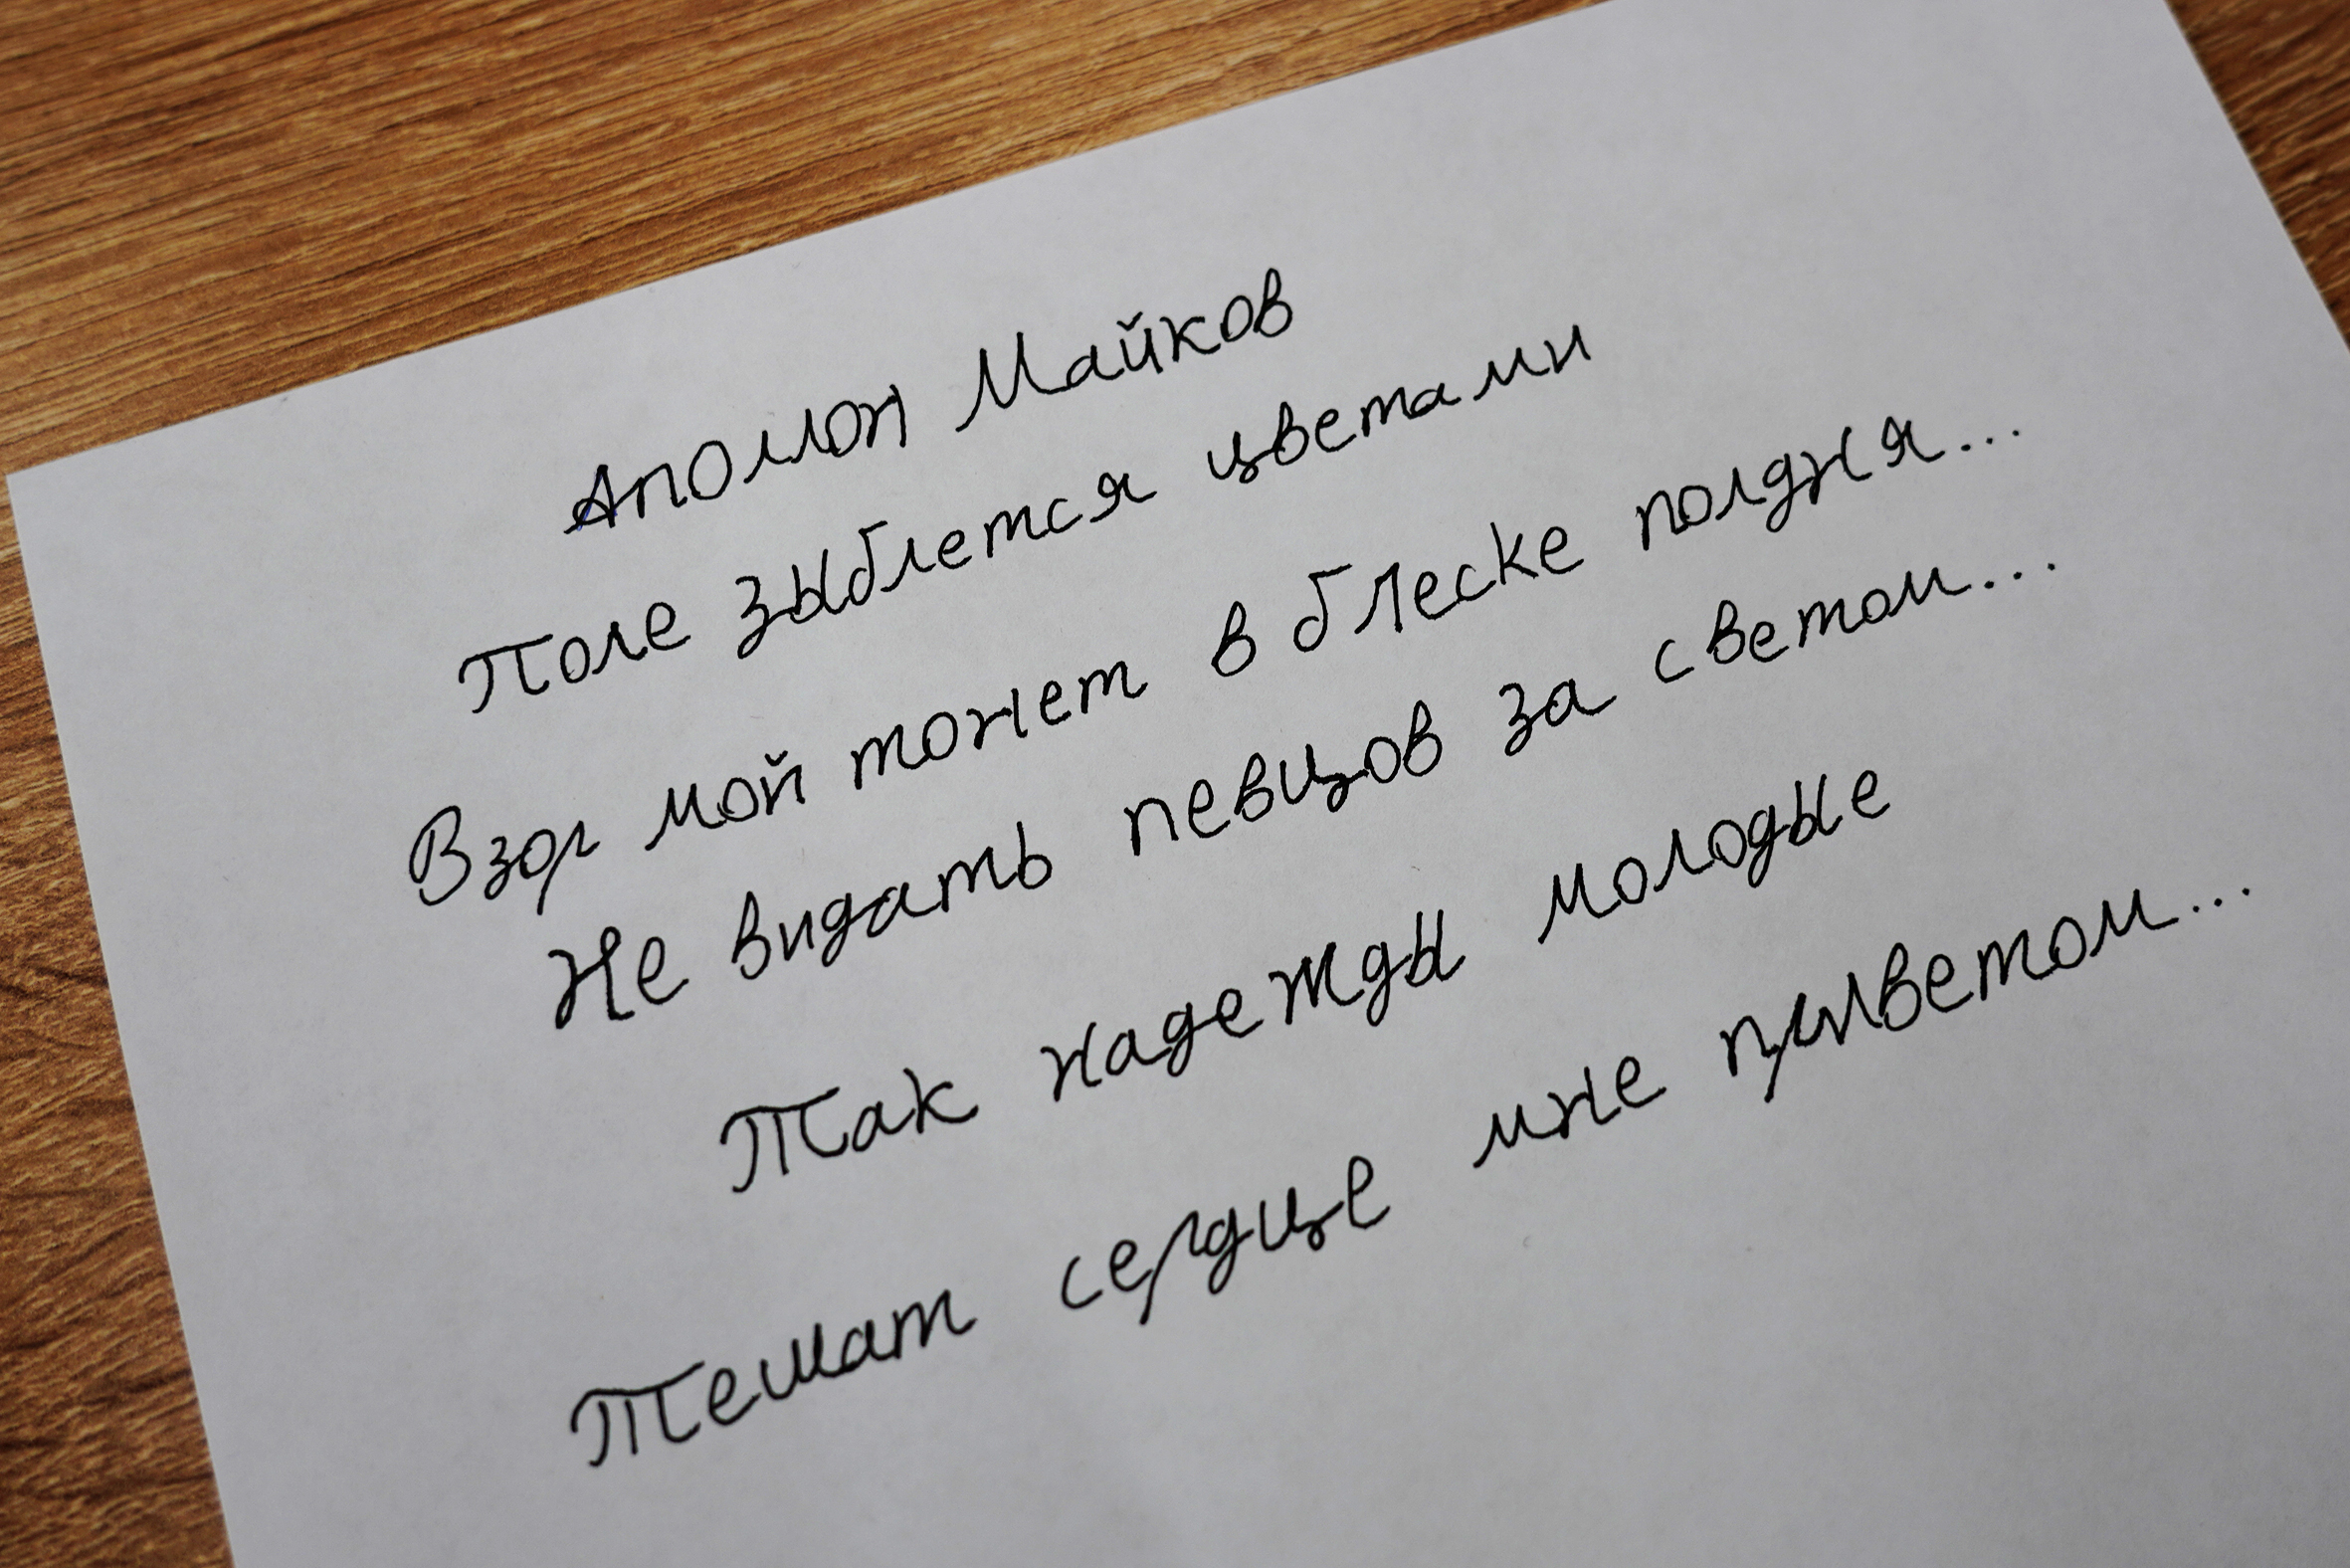 Аполлон Майков
Поле зыблется цветами
Взор мой тонет в блеске полдня...
Не видать певцов за светом...
Так надежды молодые
Тешат сердце мне приветом...